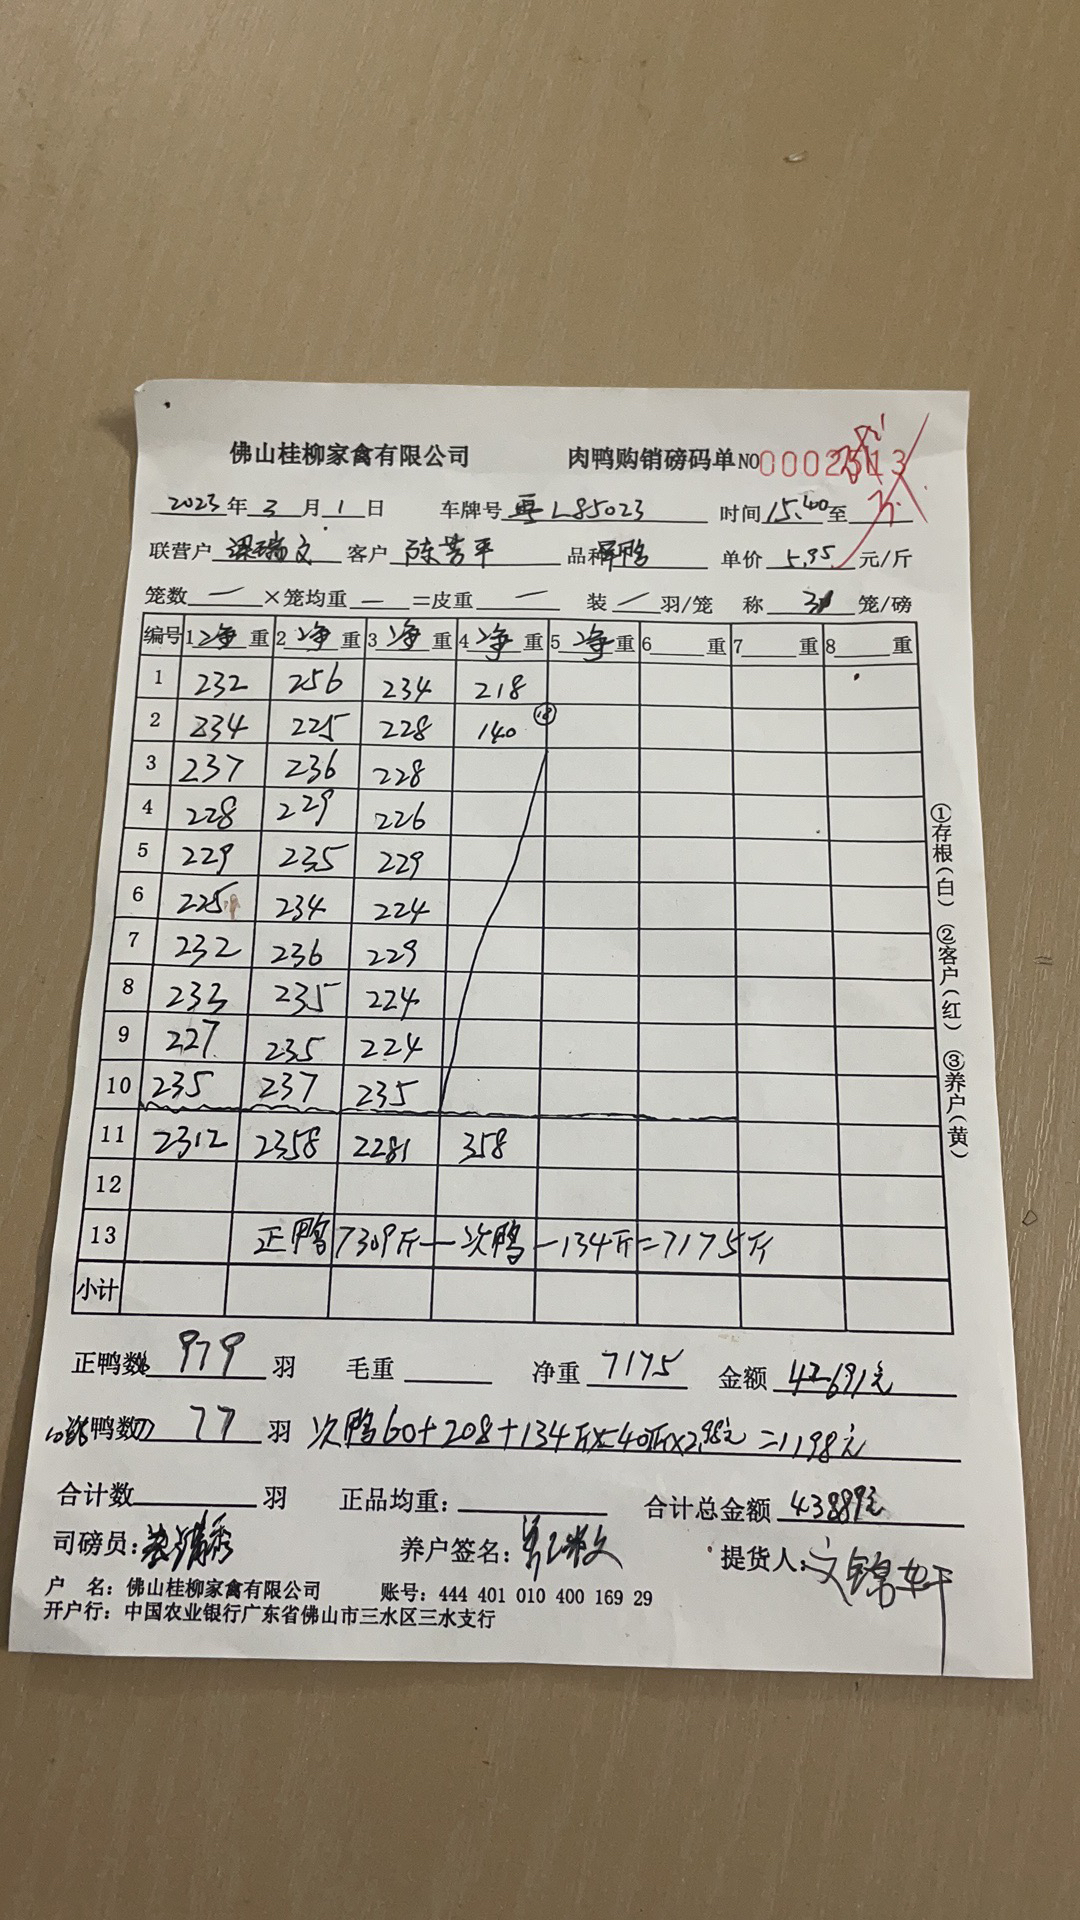 佛山桂柳家禽有限公司 肉鸭购销磅码单 NO 0002513
2023年3月1日 车牌号 粤L85023 时间 15:40 至
联营户 梁瑞文 客户 陈芳平 品种 鸭 单价 5.95 元/斤
笼数 一 ×笼均重 一 =皮重 一 装 / 羽/笼 称 笼/磅
编号 1 净 重 2 净 重 3 净 重 4 净 重 5 净 重 6 重 7 重 8 重
1 232 256 234 218
2 234 225 228 140 ⑱
3 237 236 228
4 228 229 226
5 229 235 229
6 225 234 224
7 232 236 229
8 233 235 224
9 227 235 224
10 235 237 235
11 2312 2358 2281 358
12
13 正鸭7309斤一次鸭-134斤=7175斤
小计
①存根(白) ②客户(红) ③养户(黄)
正鸭数 979 羽 毛重 净重 7175 金额 42691元
次鸭数 77 羽 次鸭60+208+134斤 =1198元
合计数 羽 正品均重: 合计总金额 43889元
司磅员: 养户签名: 提货人: 文锦轩
户 名: 佛山桂柳家禽有限公司 账号: 444 401 010 400 169 29
开户行: 中国农业银行广东省佛山市三水区三水支行